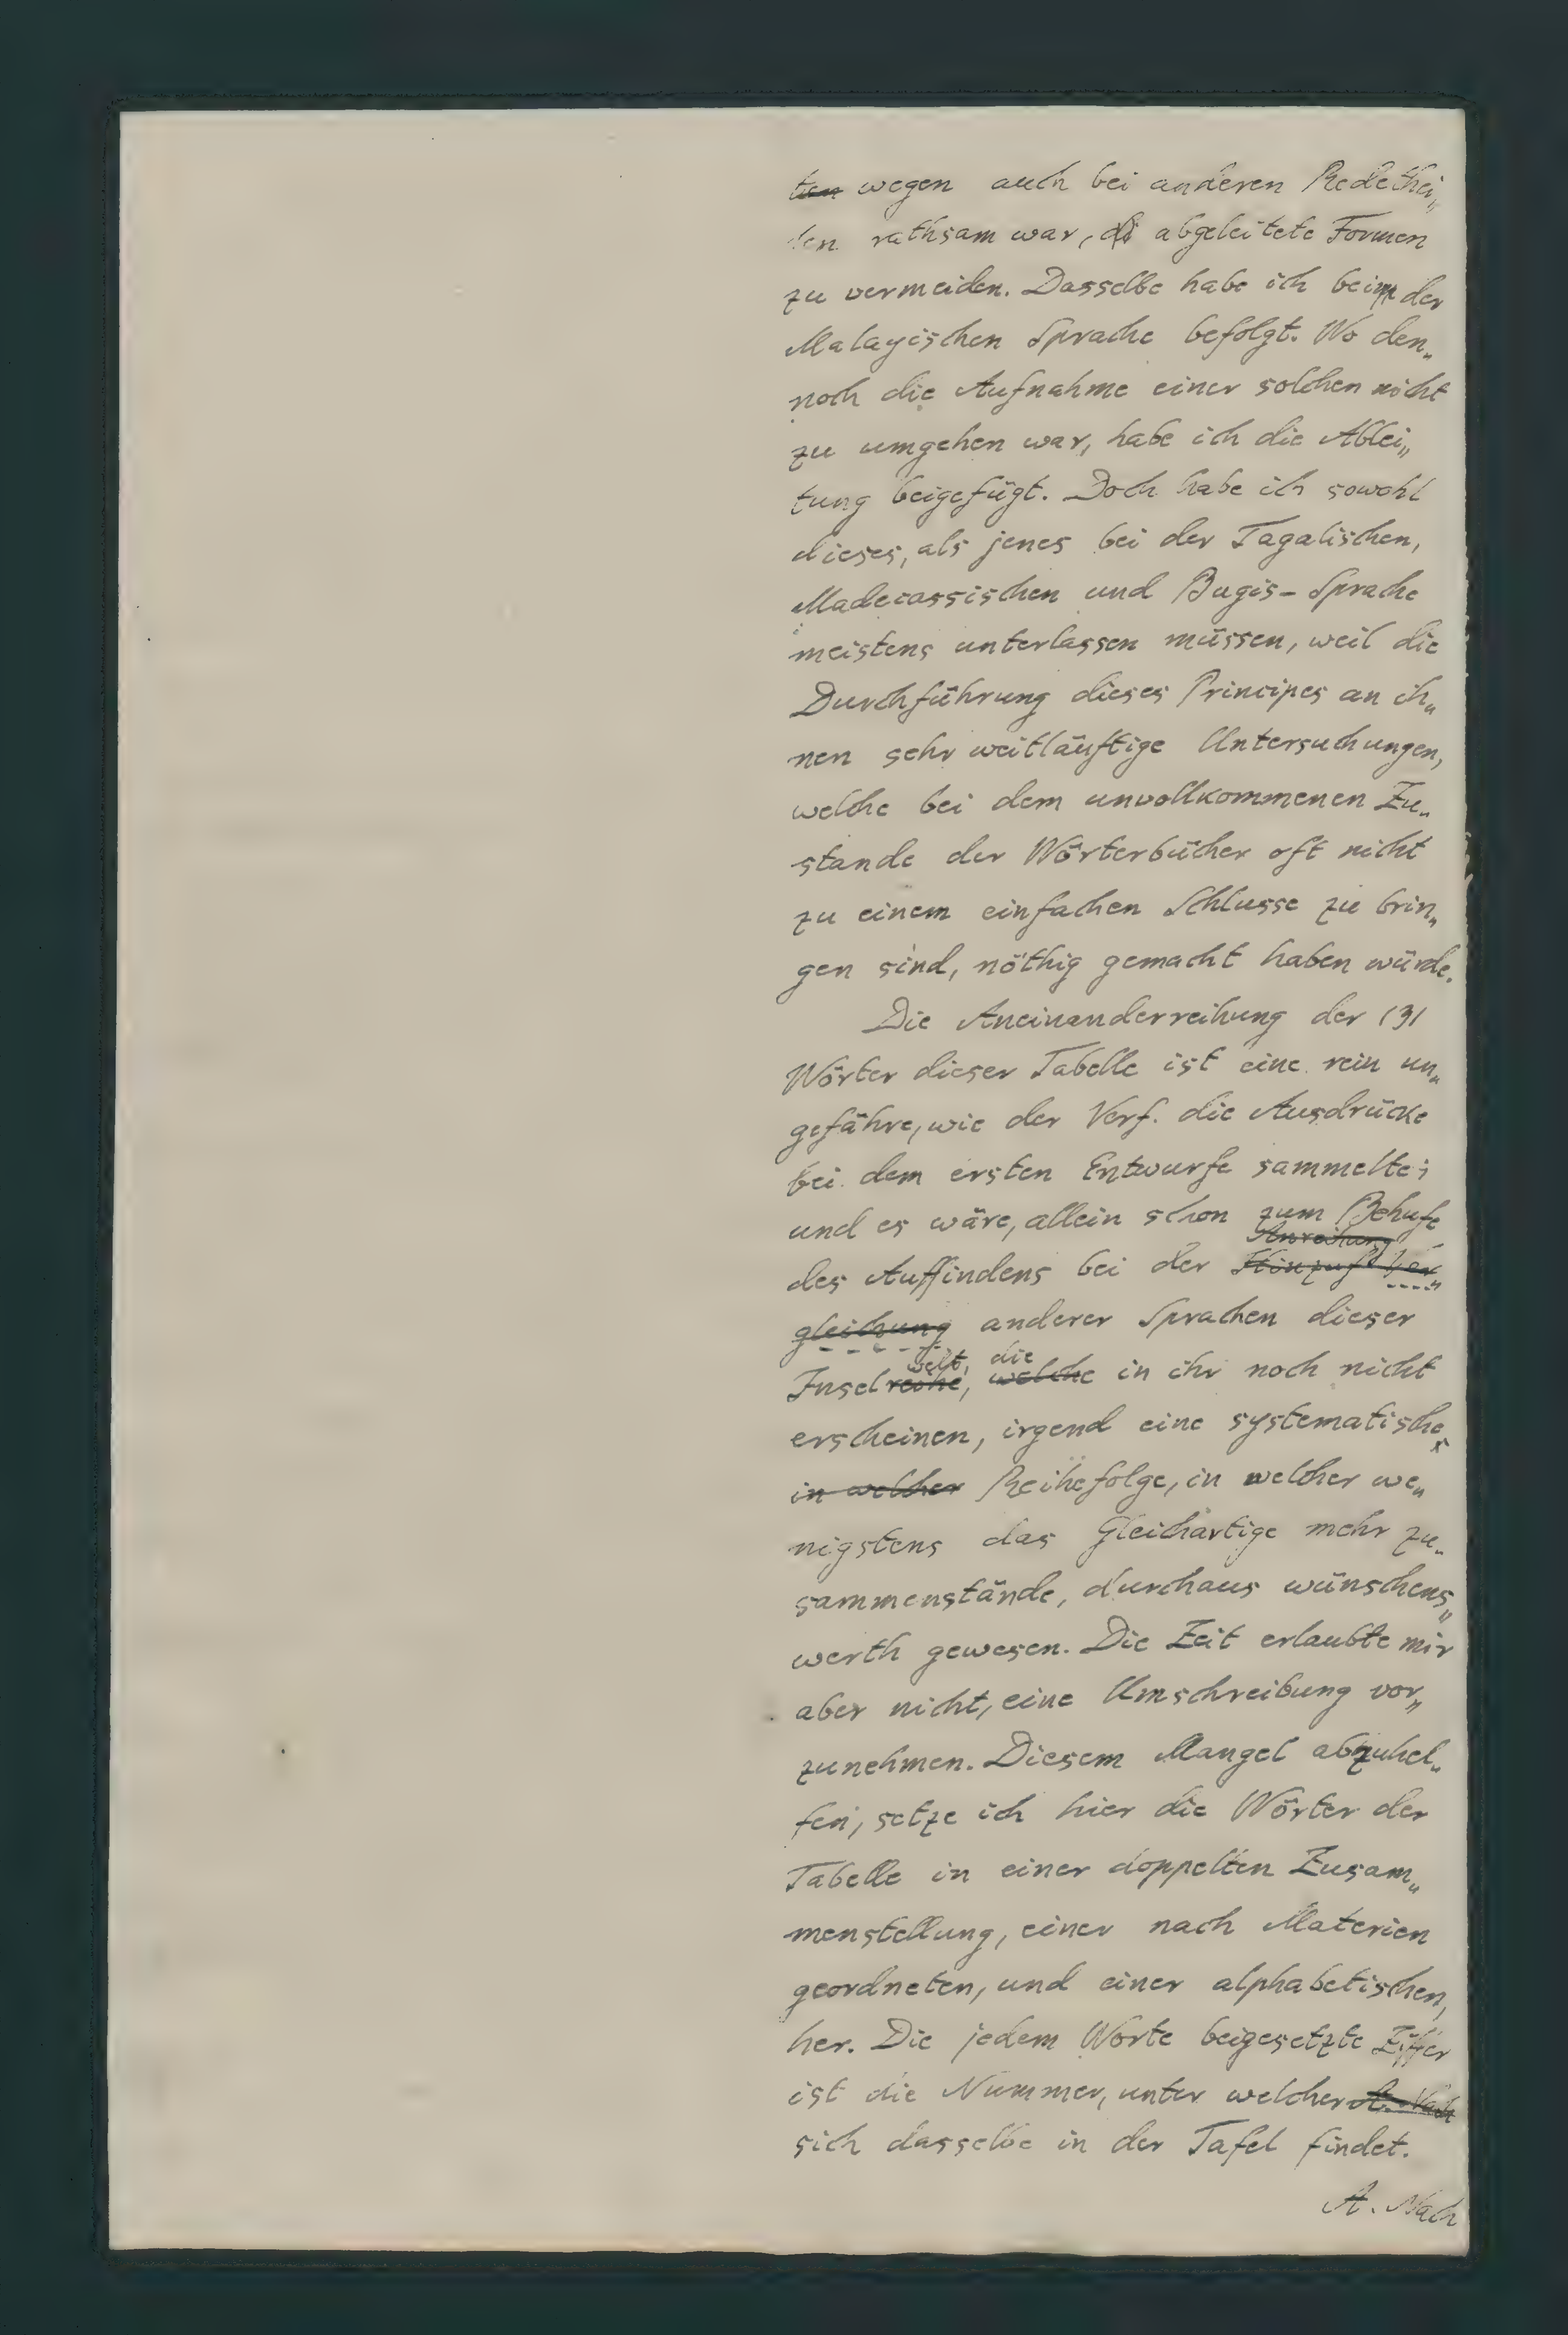 ten wegen auch bei anderen Redethei„
len rathsam war, di abgeleitete Formen
zu vermeiden. Dasselbe habe ich beim der
Malayischen Sprache befolgt. Wo den„
noch die Aufnahme einer solchen nicht
zu umgehen war, habe ich die Ablei„
tung beigefügt. Doch habe ich sowohl
dieses, als jenes bei der Tagalischen,
Madecassischen und Bugis-Sprache
meistens unterlassen müssen, weil die
Durchführung dieses Principes an ih„
nen sehr weitläuftige Untersuchungen,
welche bei dem unvollkommenen Zu„
stande der Wörterbücher oft nicht
zu einem einfachen Schlusse zu brin„
gen sind, nöthig gemacht haben würde.
Die Aneinanderreihung der 131
Wörter dieser Tabelle ist eine rein un„
gefähre, wie der Verf. die Ausdrücke
bei dem ersten Entwurfe sammelte;
und es wäre, allein schon zum Behufe
Anreihung
des Auffindens bei der Hinzuf Ver„
gleichung anderer Sprachen dieser
welt, die
Inselreihe, welche in ihr noch nicht
erscheinen, irgend eine systematische
in welcher Reihefolge, in welcher we„
nigstens das Gleichartige mehr zu„
sammenstände, durchaus wünschens„
werth gewesen. Die Zeit erlaubte mir
aber nicht, eine Umschreibung vor„
zunehmen. Diesem Mangel abzuhel„
fen, setze ich hier die Wörter der
Tabelle in einer doppelten Zusam„
menstellung, einer nach Materien
geordneten, und einer alphabetischen,
her. Die jedem Worte beigesetzte Ziffer
ist die Nummer, unter welcher A. Nach
sich dasselbe in der Tafel findet.
A. Nach